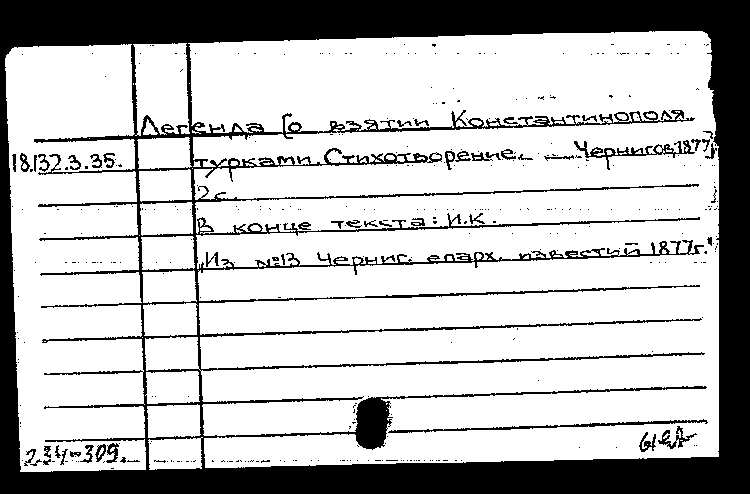 Легенда [о взятии Константинополя
18.132.3.35. турками. Стихотворение. — Чернигов, 1877]
2 с.
В конце текста: И.К.
„Из №13 Черниг. епарх. известий 1877г."
234-309.